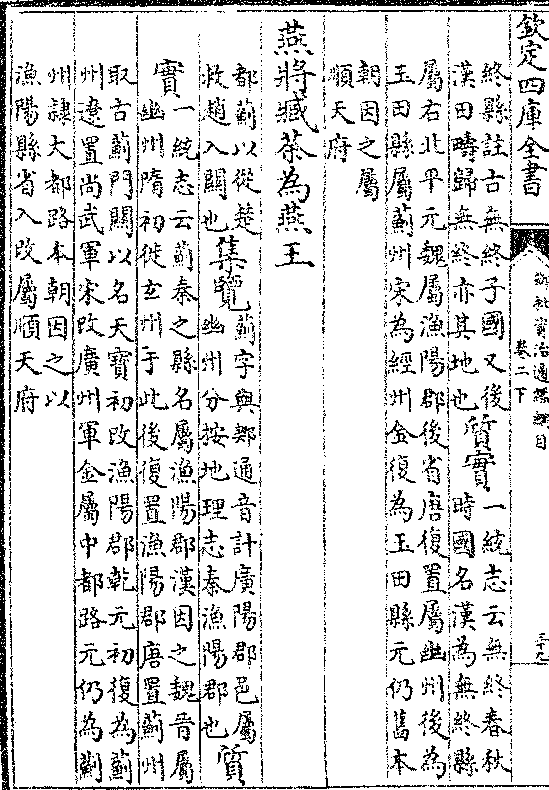 欽定四庫全書
御批資治通鑑綱目
卷二下
三十九
終縣註古無終子國又後
漢田疇歸無終亦其地也
質實
一統志云無終春秋
時國名漢為無終縣
屬右北平元魏屬漁陽郡後省唐復置屬幽州後為
玉田縣屬薊州宋為經州金復為玉田縣元仍舊本
朝因之屬
順天府
燕將臧荼為燕王
都薊以從楚
救趙入關也
集覽
薊字與鄿通音計廣陽郡邑屬
幽州分按地理志秦漁陽郡也
質
實
一統志云薊秦之縣名屬漁陽郡漢因之魏晉屬
幽州隋初徙玄州于此後復置漁陽郡唐置薊州
取古薊門關以名天寶初改漁陽郡乾元初復為薊
州遼置尚武軍宋改廣州軍金屬中都路元仍為薊
州隸大都路本朝因之以
漁陽縣省入改屬順天府